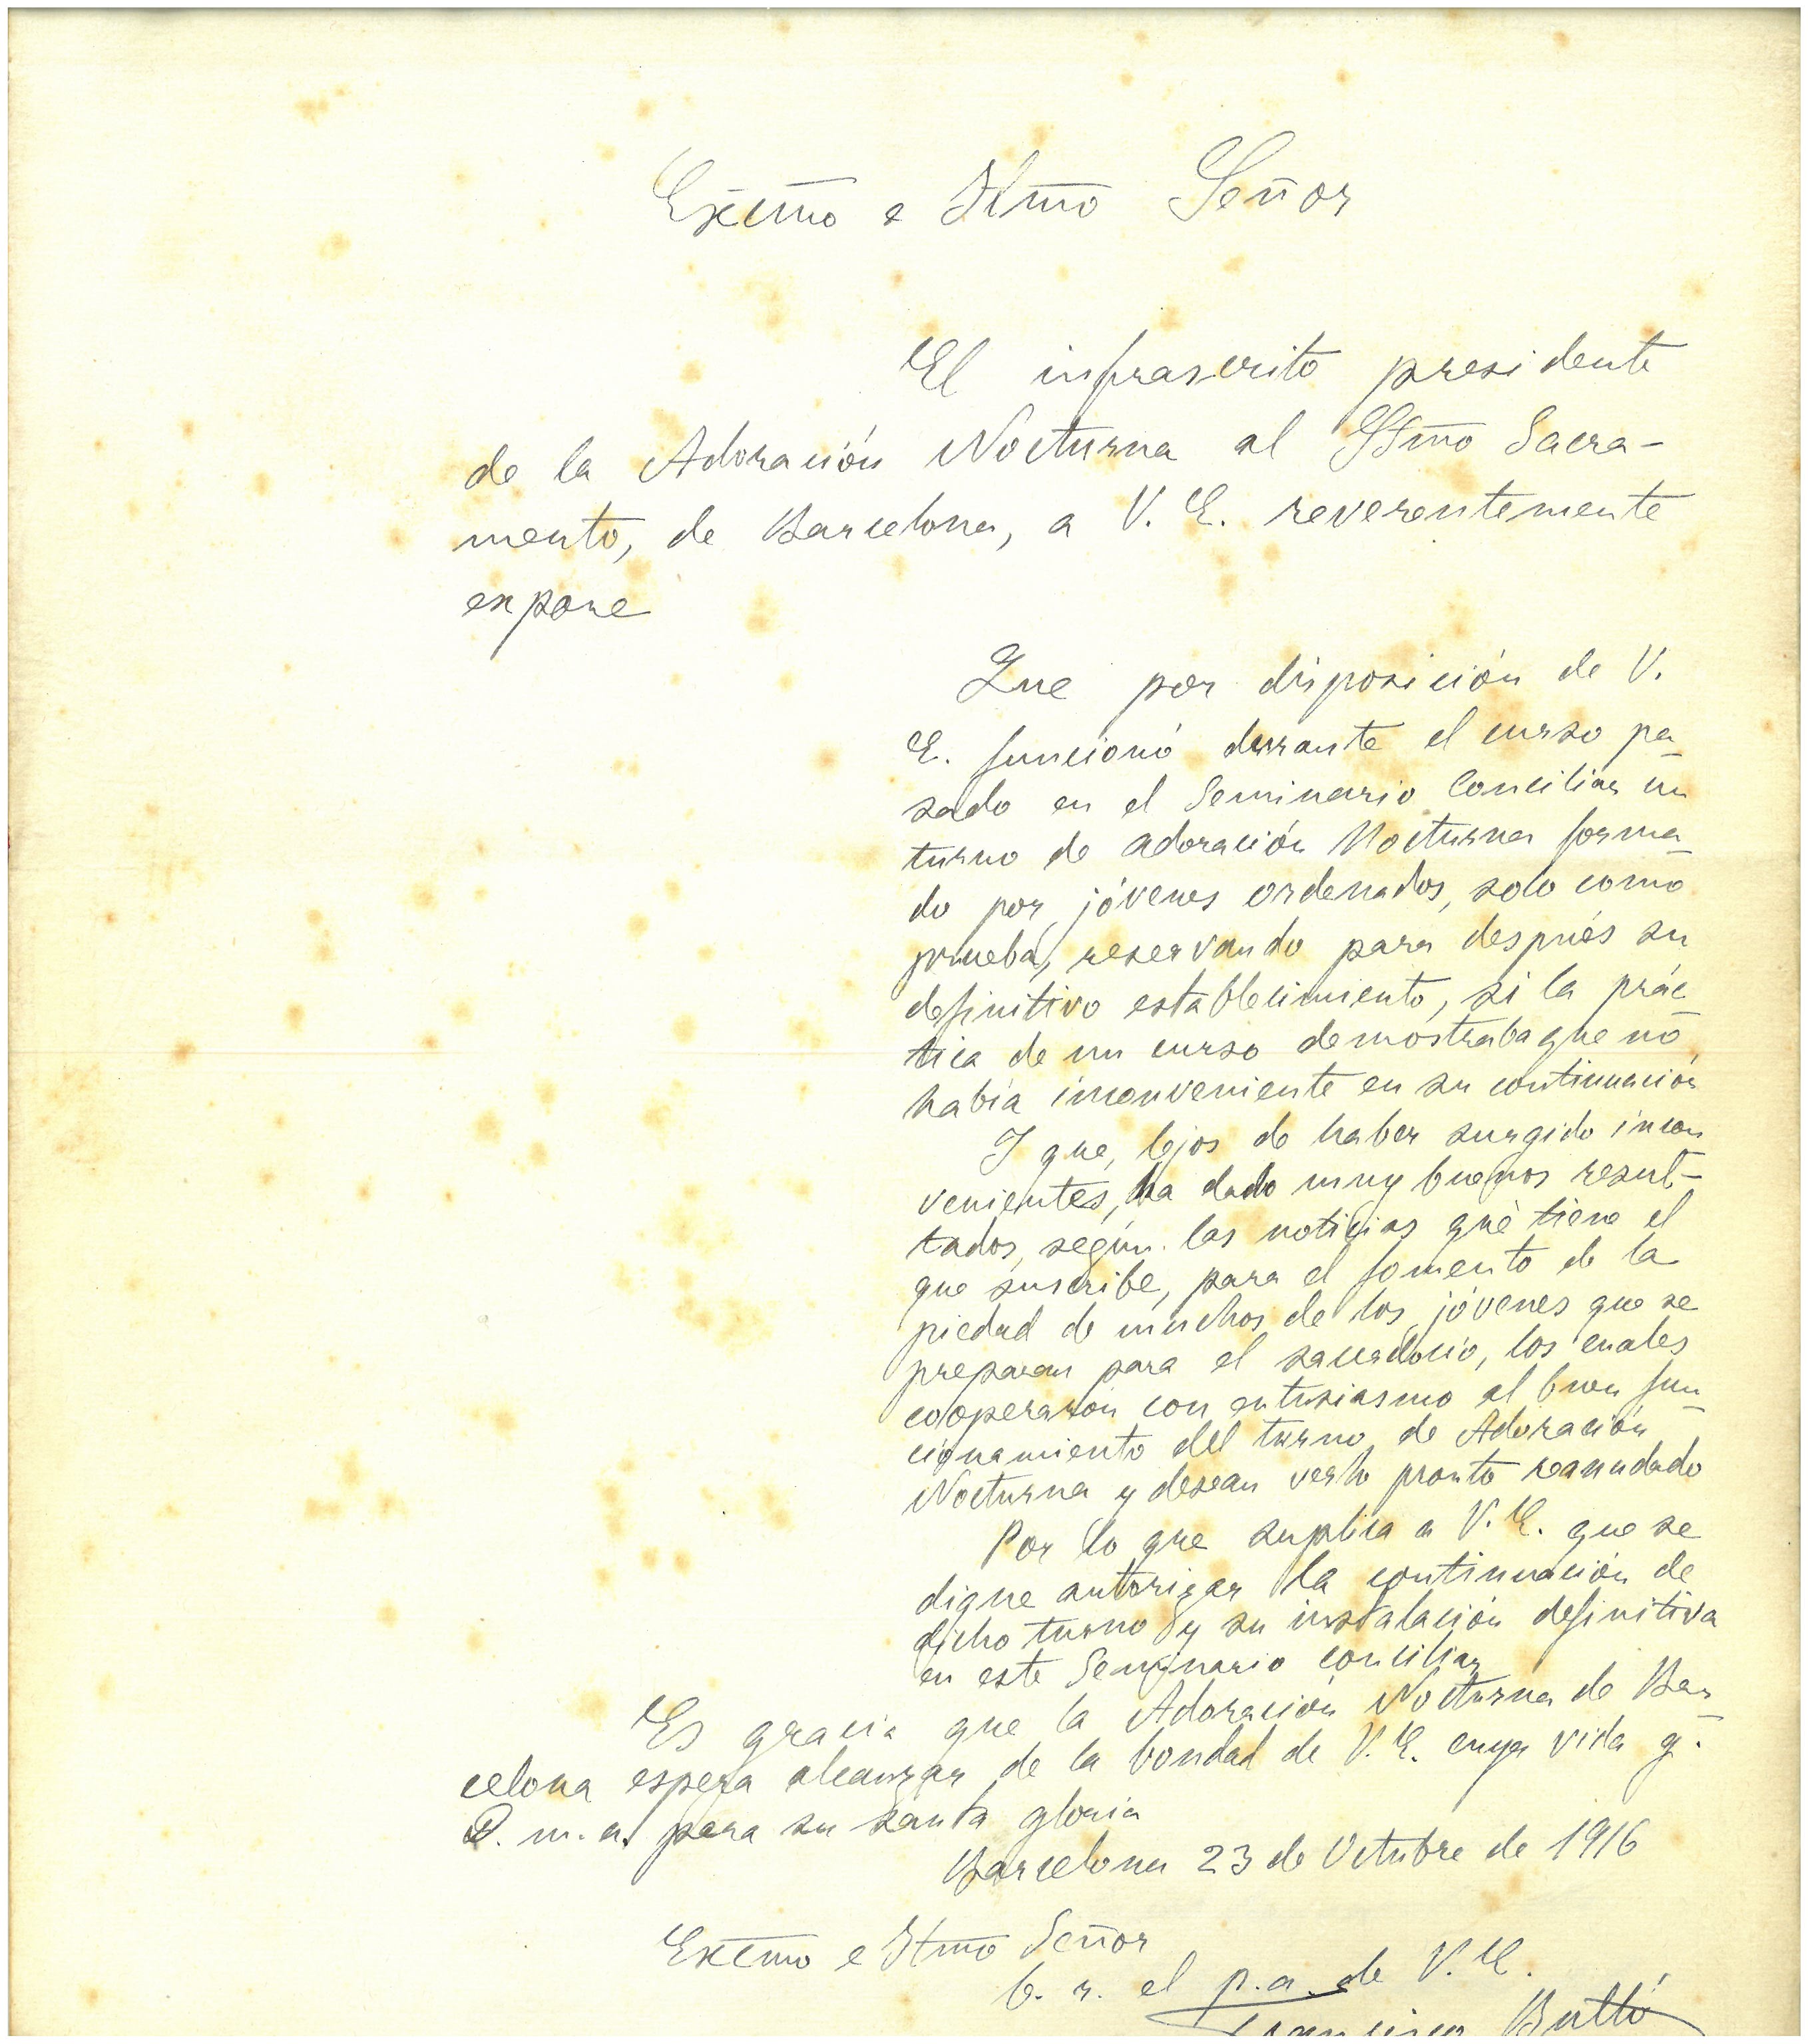 Excmo e Iltmo Señor
El infrascrito presidente
de la Adoración Nocturna al SSmo Sacra-
mento, de Barcelona, a V. E. reverentemente
expone
Que por disposición de V.
E. funcionó durante el curso pa-
sado en el Seminario Conciliar un
turno de adoración Nocturna forma-
do por jóvenes ordenados, solo como
prueba, reservando para después su
definitivo establecimiento, si la prác-
tica de un curso demostraba que no
había inconveniente en su continuación
I que, lejos de haber surgido incon
venientes, ha dado muy buenos resul-
tados, según las noticias que tiene el
que suscribe, para el fomento de la
piedad de muchos de los jóvenes que se
preparan para el sacerdocio, los cuales
cooperaron con entusiasmo al buen fun-
cionamiento del turno de Adoración
Nocturna y desean verlo pronto reanudado
Por lo que suplica a V. E. que se
digne autorizar la continuación de
dicho turno y su instalación definitiva
en este Seminario conciliar
Es gracia que la Adoración Nocturna de Bar-
celona espera alcanzar de la bondad de V. E. cuya vida g.
D. m. a. para su santa gloria
Barcelona 23 de Octubre de 1916
Excmo e Iltmo Señor
b. s. el p.a. de V. E.
Francisco Butlló